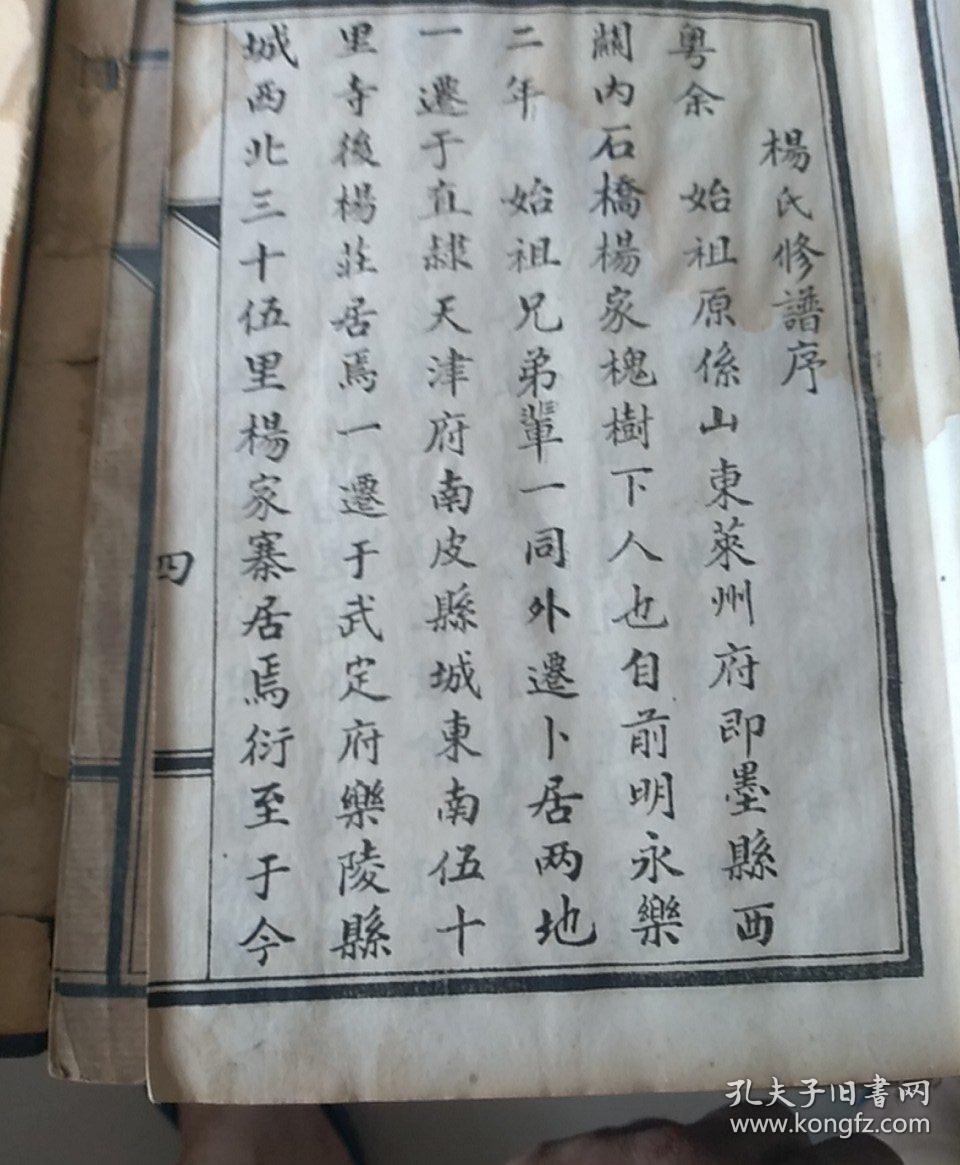 楊氏修譜序
粤余　始祖原係山東萊州府即墨縣西
關内石橋楊家槐樹下人也自前明永樂
二年　始祖兄弟輩一同外遷卜居两地
一遷于直隸天津府南皮縣城東南伍十
里寺後楊莊居焉一遷于武定府樂陵縣
城西北三十伍里楊家寨居焉衍至于今
四
孔夫子旧书网
www.kongfz.com